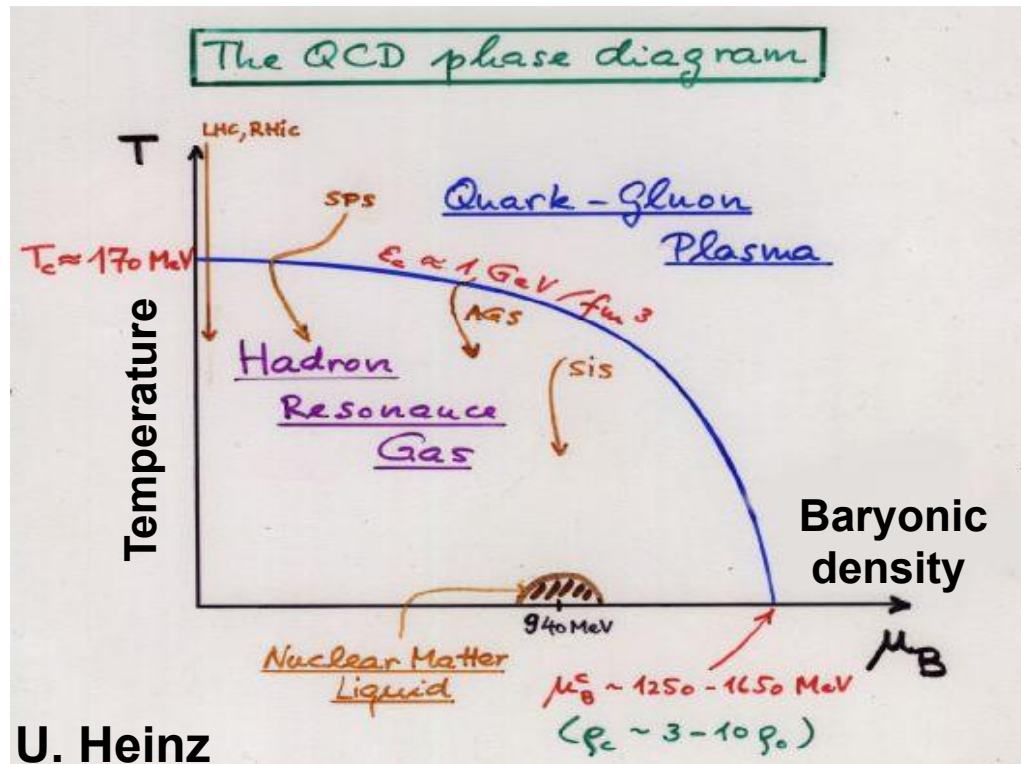 The QCD phase diagram
LHC, RHiC
T
SPS
Quark - Gluon
Plasma
Tc ≈ 170 MeV
εc ≈ 1 GeV/fm³
AGS
SiS
Temperature
Hadron
Resonance
Gas
Baryonic
density
940 MeV
μB
Nuclear Matter
Liquid
μ_B^c ~ 1250 - 1650 MeV
(ρc ~ 3 - 10 ρ₀)
U. Heinz